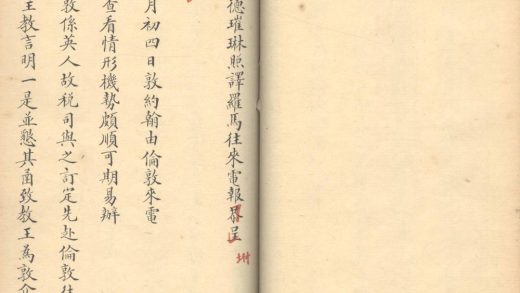 德璀琳照譯羅馬往來電報
呈
附
月初四日敦約翰由倫敦來電
查看情形機勢頗順可期易辦
敦係英人故稅司與之訂定先赴倫敦
王教言明一是並懇其函致教王為敦